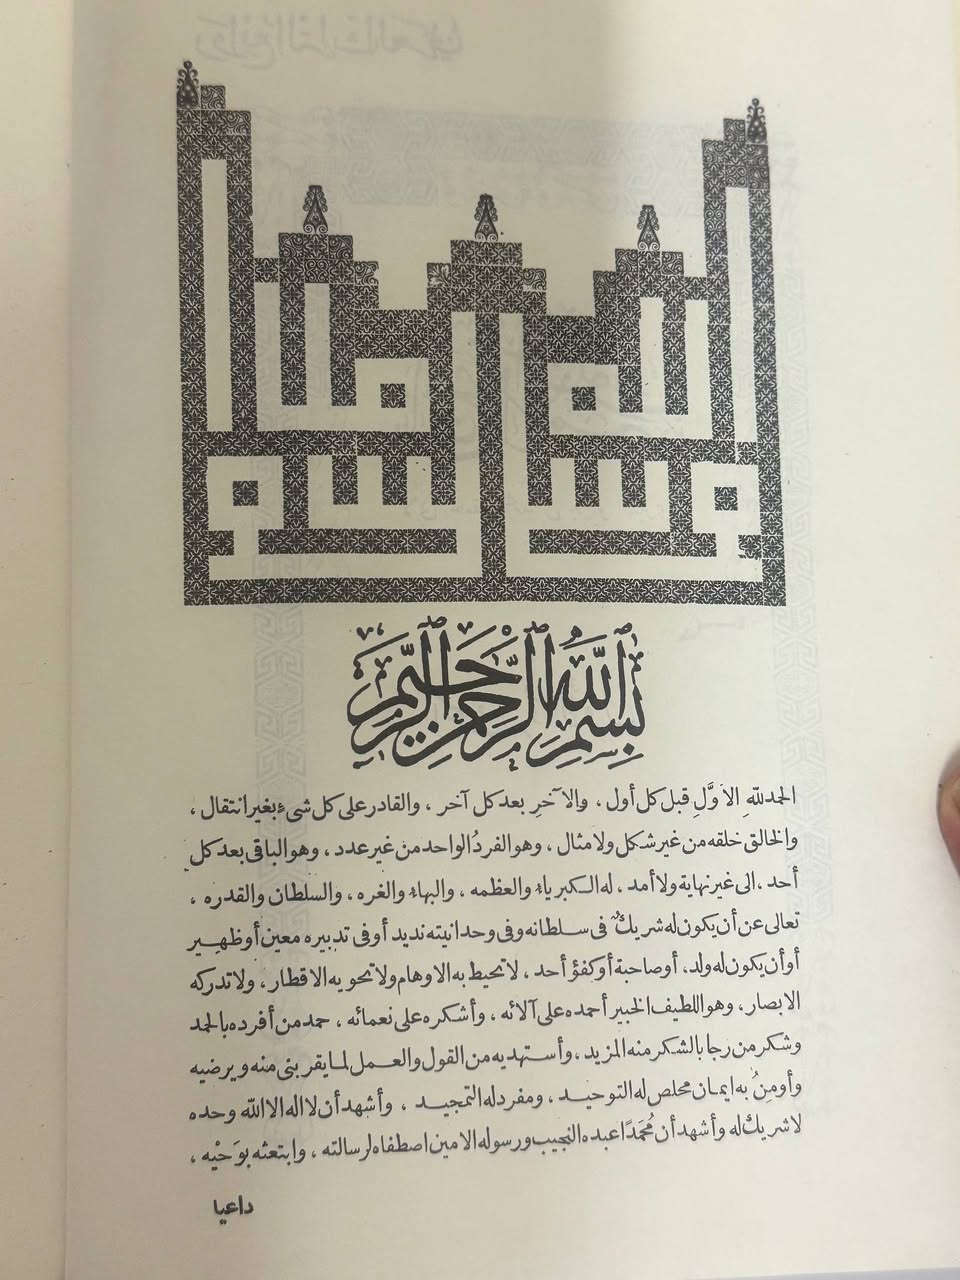 بِسْمِ اللهِ الرَّحْمٰنِ الرَّحِيمِ
الحمد للهِ الاوَّلِ قبل كل أول ، والاٰخرِ بعد كل آخر ، والقادر على كل شىء بغير انتقال ،
والخالق خلقه من غير شكل ولا مثال ، وهو الفردُ الواحد من غير عدد ، وهو الباقى بعد كل
أحد ، الى غير نهاية ولا أمد ، له الكبرياء والعظمه ، والبهاء والعزه ، والسلطان والقدره ،
تعالى عن أن يكون له شريكٌ فى سلطانه وفى وحدانيته نديد أو فى تدبيره معين أو ظهير
أو أن يكون له ولد ، أو صاحبة أو كفؤ أحد ، لا تحيط به الاوهام ولا تحويه الاقطار ، ولا تدركه
الابصار ، وهو اللطيف الخبير أحمده على آلائه ، وأشكره على نعمائه ، حمد من أفرده بالحمد
وشكر من رجا بالشكر منه المزيد ، وأستهديه من القول والعمل لما يقربنى منه ويرضيه
وأومِنُ به ايمان مخلص له التوحيد ، ومفرد له التمجيد ، وأشهد أن لا اله الا الله وحده
لا شريك له وأشهد أن مُحمَدًا عبده النجيب ورسوله الامين اصطفاه لرسالته ، وابتعثه بوَحْيه ،
داعيا